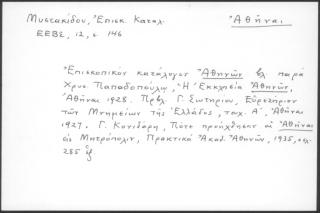 Μυστακίδου, Ἐπισκ. Καταλ.
Ἀθῆναι
ΕΕΒΣ, 12, σ. 146
Ἐπισκοπικὸν κατάλογον Ἀθηνῶν βλ. παρὰ
Χρυσ. Παπαδοπούλῳ, Ἡ Ἐκκλησία Ἀθηνῶν,
Ἀθῆναι 1928. Πρβλ. Γ. Σωτηρίου, Εὑρετήριον
τῶν Μνημείων τῆς Ἑλλάδος, τευχ. Α΄, Ἀθῆναι
1927. Γ. Κονιδάρη, Πότε προήχθησαν αἱ Ἀθῆναι
εἰς Μητρόπολιν, Πρακτικὰ Ἀκαδ. Ἀθηνῶν, 1935, σελ.
285 ἑξ